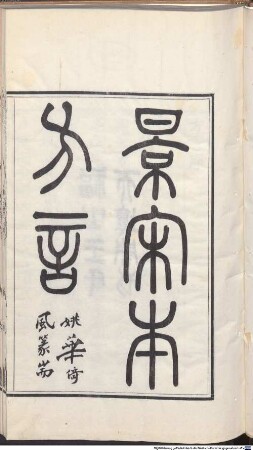 景宋本
方言
姚華倚
風篆耑